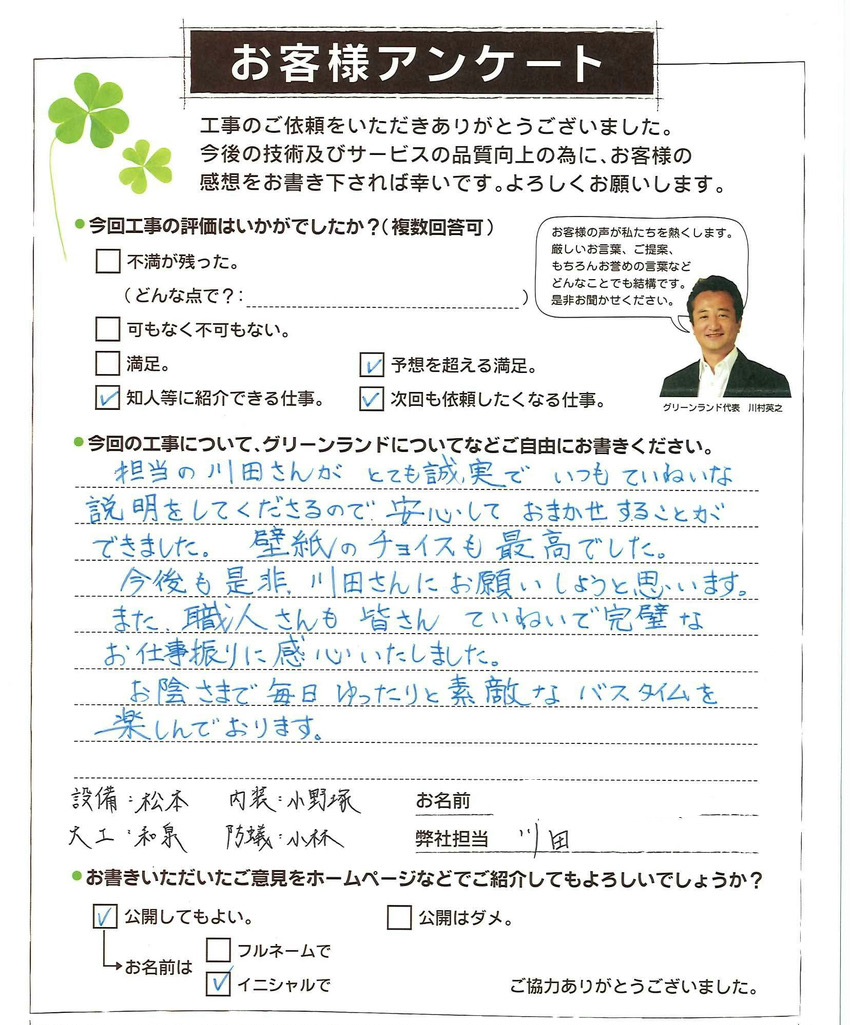 お客様アンケート
工事のご依頼をいただきありがとうございました。
今後の技術及びサービスの品質向上の為に、お客様の
感想をお書き下されば幸いです。よろしくお願いします。
●今回工事の評価はいかがでしたか？（複数回答可）
不満が残った。
（どんな点で？：　　　　）
可もなく不可もない。
満足。
予想を超える満足。
知人等に紹介できる仕事。
次回も依頼したくなる仕事。
お客様の声が私たちを熱くします。
厳しいお言葉、ご提案、
もちろんお誉めの言葉など
どんなことでも結構です。
是非お聞かせください。
グリーンランド代表　川村英之
●今回の工事について、グリーンランドについてなどご自由にお書きください。
担当の川田さんが とても誠実で いつも ていねいな
説明をしてくださるので 安心して おまかせすることが
できました。 壁紙のチョイスも 最高でした。
今後も是非、川田さんに お願い しようと思います。
また、職人さんも 皆さん ていねいで 完璧な
お仕事振りに感心いたしました。
お陰さまで 毎日 ゆったりと素敵な バスタイムを
楽しんでおります。
設備：松本　内装：小野塚
大工：和泉　防蟻：小林
お名前
弊社担当　川田
●お書きいただいたご意見をホームページなどでご紹介してもよろしいでしょうか？
公開してもよい。
公開はダメ。
お名前は
フルネームで
イニシャルで
ご協力ありがとうございました。